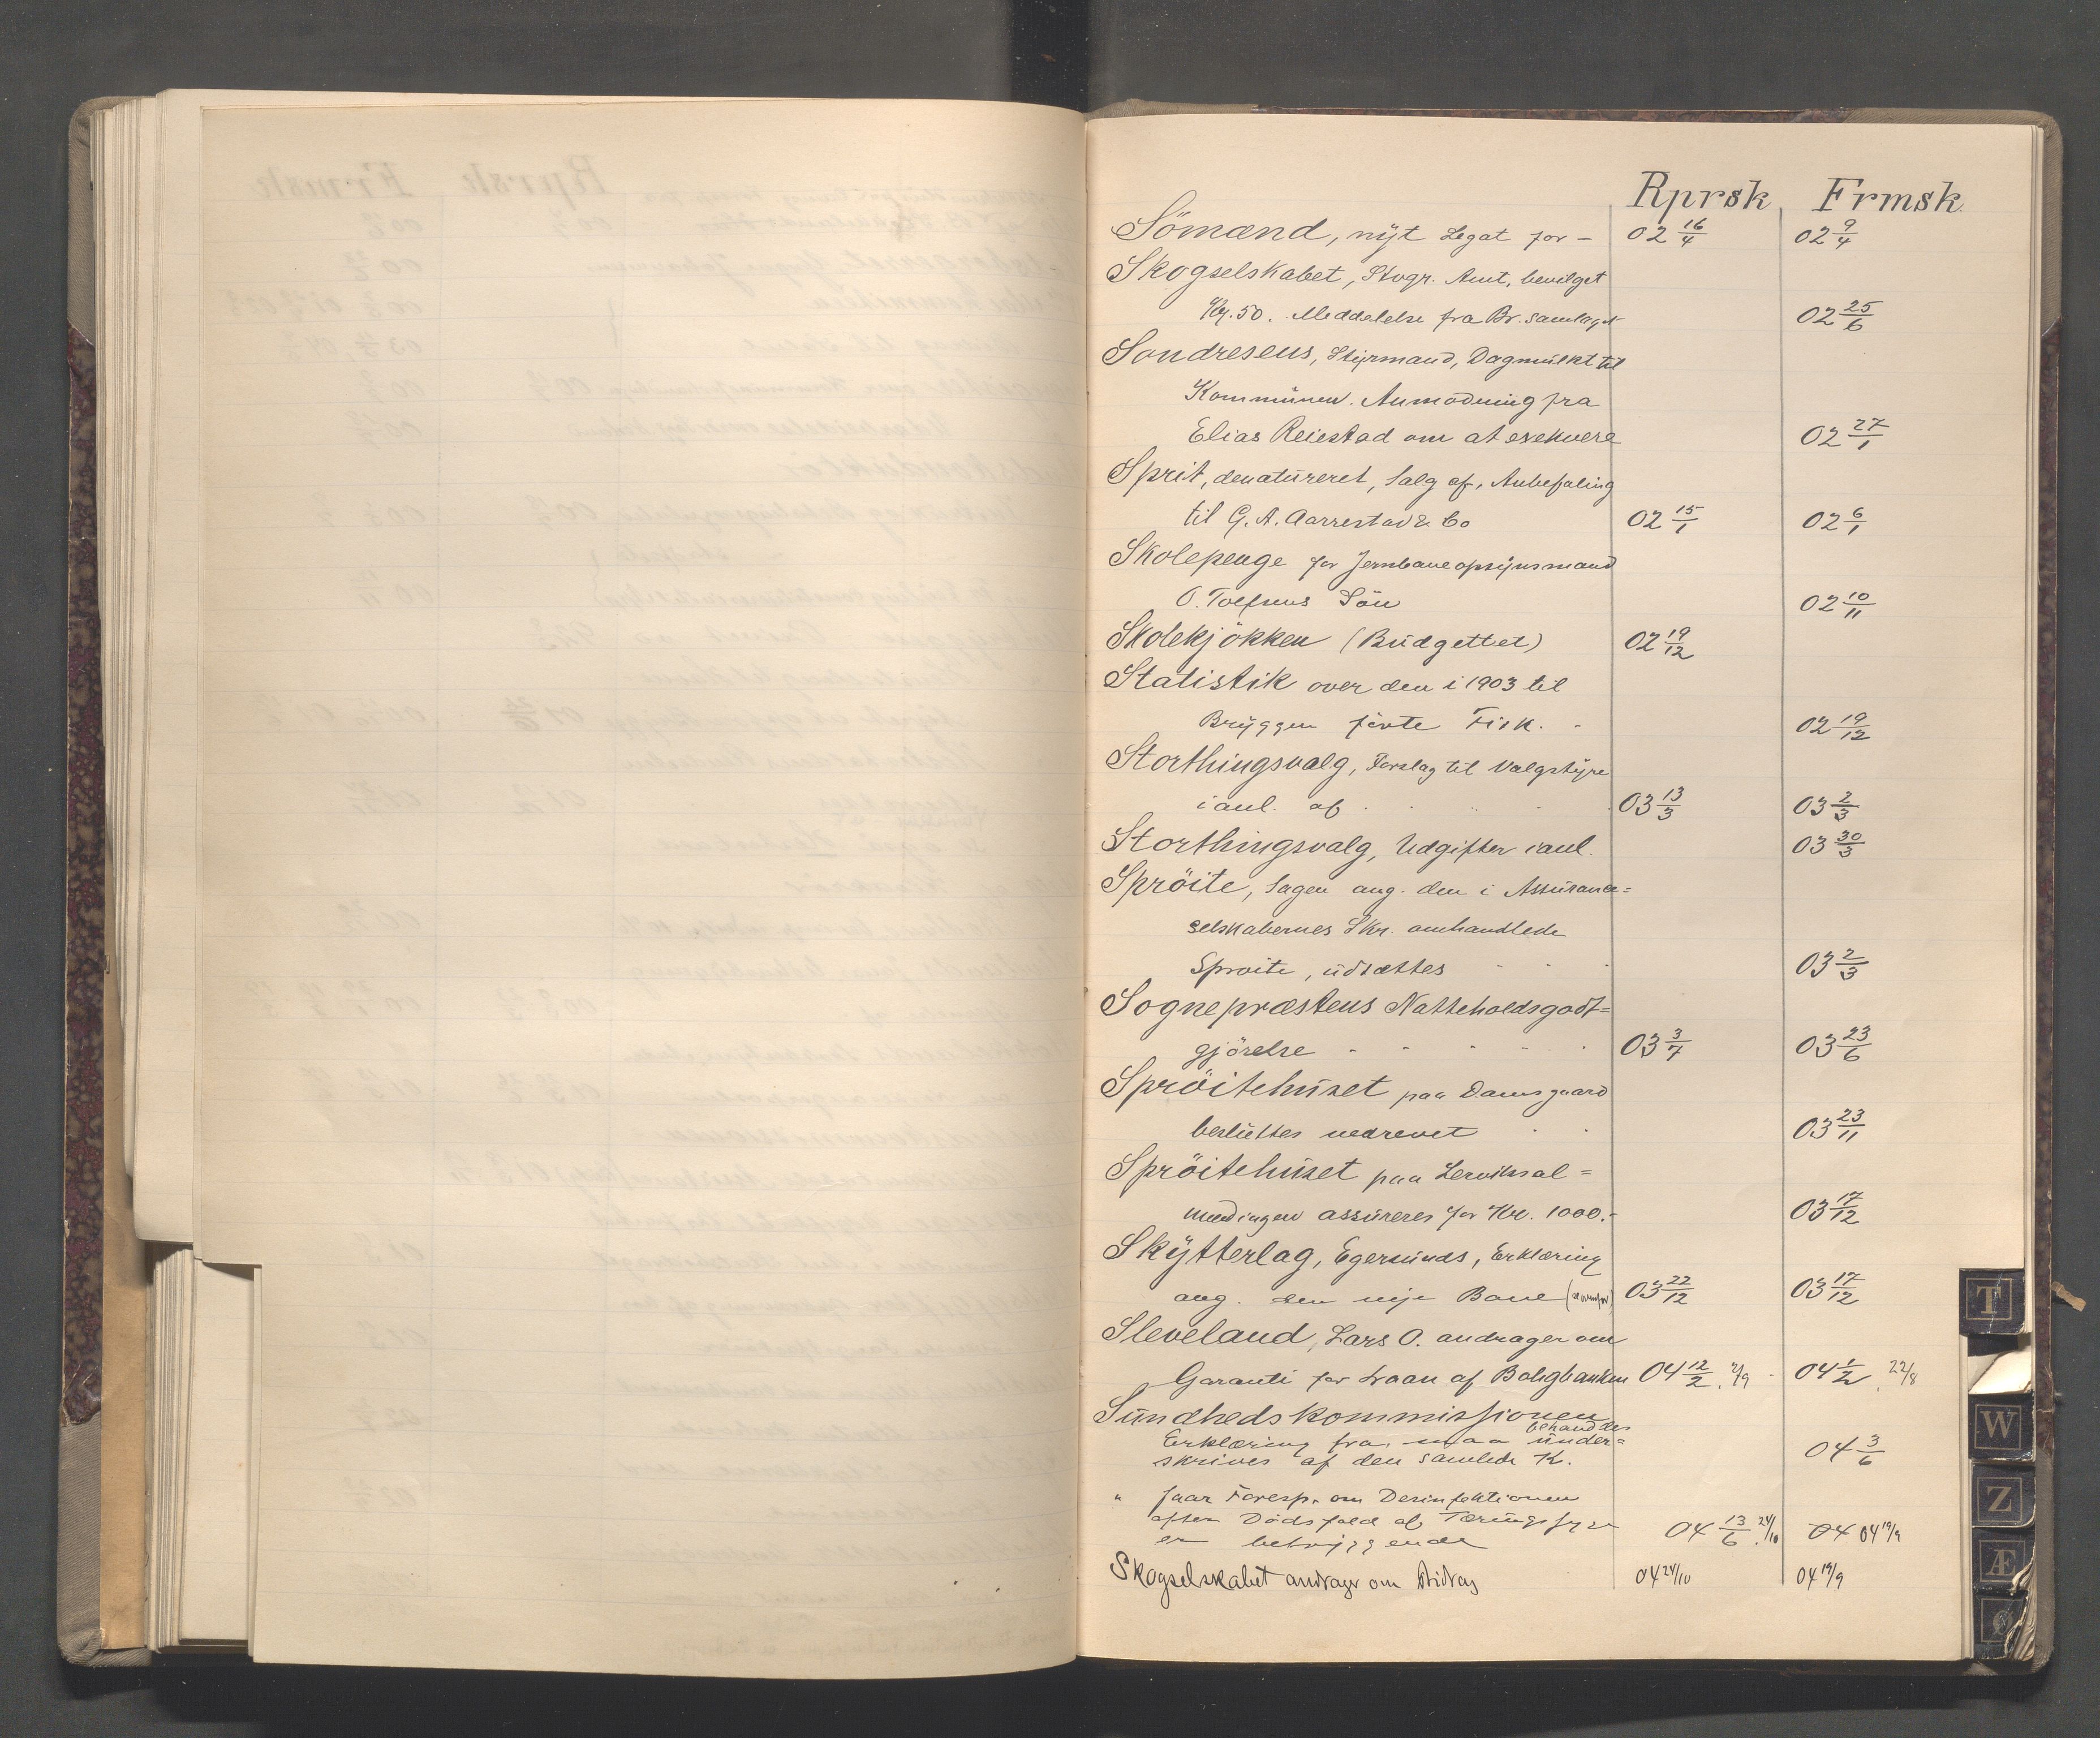 Rprsk Frmsk
Sömænd, nyt Legat for – 02 16/4 02 9/4
Skogselskabet, Stvgr. Amt, bevilget
Kr. 50. Meddelelse fra Br. samlaget 02 25/6
Sondresens, Styrmand, Dagmulkt til
Kommunen. Anmodning fra
Elias Reiestad om at exekvere 02 27/1
Sprit, denatureret, Salg af, Anbefaling
til G. A. Aarrestad & Co 02 15/1 02 6/1
Skolepenge for Jernbaneopsynsmand
O. Tolfsens Sön 02 10/11
Skolekjökken (Budgettet) 02 19/12
Statistik over den i 1903 til
Bryggen förte Fisk. 02 19/12
Storthingsvalg, Forslag til Valgstyre
i anl. af 03 13/3 03 2/3
Storthingsvalg, Udgifter i anl. 03 30/3
Spröite, Sagen ang. den i Assurance=
selskabernes Skr. omhandlede
Sproite, udsættes 03 2/3
Sognepræstens Natteholdsgodt=
gjörelse 03 3/7 03 23/6
Spröitehuset paa Damsgaard
besluttes nedrevet 03 23/11
Spröitehuset paa Lerviksal=
mendingen assureres for Kr. 1000.-
03 17/12
Skytterlag, Egersunds, Erklæring
ang. den nye Bane 03 22/12 03 17/12
Sleveland, Lars O. andrager om
Garanti for Laan af Boligbanken 04 12/2. 2/9 04 1/2. 22/8
Sundhedskommissionen
behandles
Erklæring fra, maa under=
skrives af den samlede K. 04 3/6
" faar Foresp. om Desinfektionen
efter Dödsfald af Tæringssyge
er betryggende 04 13/6. 24/10 04 04 19/9
Skogselskabet andrager om Bidrag 04 24/10 04 19/9
T
W
Z
Æ
Ø